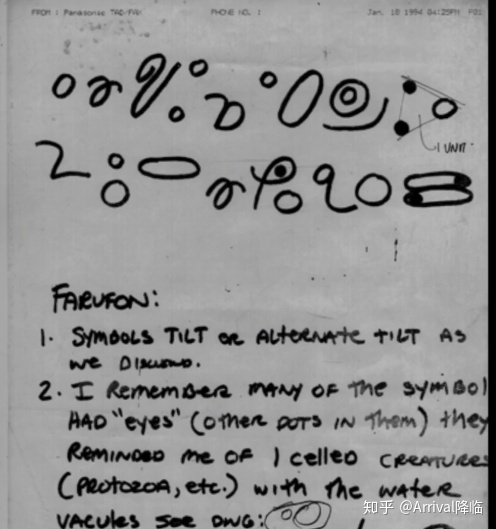 FROM : Panasonic TAD/FAX PHONE NO. : Jan. 18 1994 04:25PM P01
1 UNIT
FARUFON:
1. SYMBOLS TILT OR ALTERNATE TILT AS
WE DISCUSSED.
2. I REMEMBER MANY OF THE SYMBOL
HAD "eyes" (OTHER DOTS IN THEM) they
REMINDED ME OF 1 celled CREATURES
(PROTOZOA, ETC.) WITH THE WATER
VACULES SEE DWG:
知乎 @Arrival降临